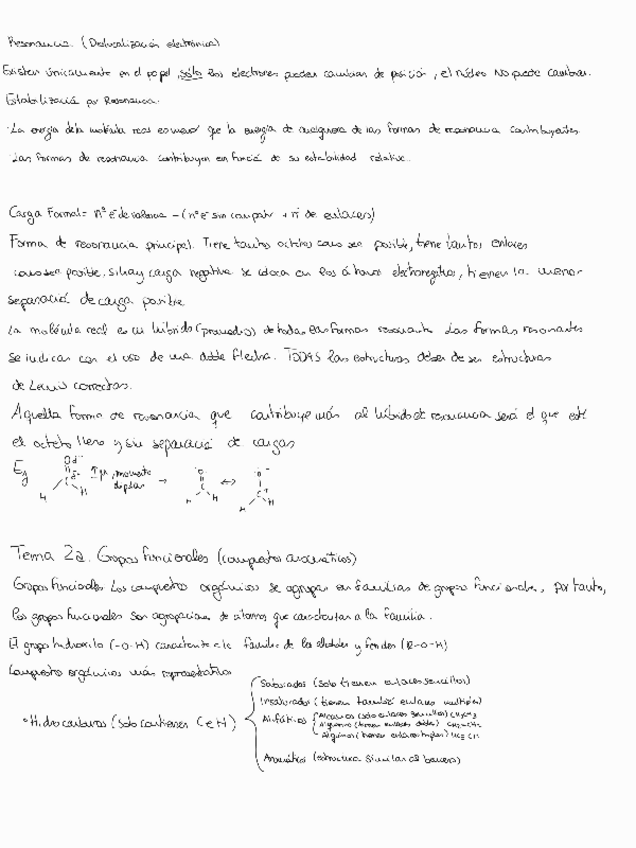 Resonancia. (Deslocalización electrónica)
Existen únicamente en el papel, sólo los electrones pueden cambiar de posición, el núcleo NO puede cambiar.
Estabilización por Resonancia.
· La energía de la molécula real es menor que la energía de cualquiera de las formas de resonancia contribuyentes.
· Las formas de resonancia contribuyen en función de su estabilidad relativa.
Carga Formal = nº e⁻ de valencia - (nº e⁻ sin compartir + nº de enlaces)
Forma de resonancia principal. Tiene tantos octetos como sea posible, tiene tantos enlaces
como sea posible, si hay carga negativa se coloca en los átomos electronegativos, tienen la menor
separación de carga posible
La molécula real es un híbrido (promedio) de todas las formas resonantes. Las formas resonantes
se indican con el uso de una doble flecha. TODAS las estructuras deben de ser estructuras
de Lewis correctas.
Aquella forma de resonancia que contribuye más al híbrido de resonancia será el que esté
el octeto lleno y sin separación de cargas
Ej
O δ-
C
H H
↑μ, momento
dipolar →
O
C
H H
↔
O -
C +
H H
Tema 2a. Grupos funcionales (compuestos aromáticos)
Grupos funcionales los compuestos orgánicos se agrupan en familias de grupos funcionales, por tanto,
los grupos funcionales son agrupaciones de átomos que caracterizan a la familia.
El grupo hidroxilo (-O-H) caracteriza a la familia de los alcoholes y fenoles (R-O-H)
Compuestos orgánicos más representativos
• Hidrocarburos (Solo contienen C e H)
Saturados (Solo tienen enlaces sencillos)
Insaturados (tienen también enlaces múltiples)
Alifáticos
Alcanos (solo enlaces sencillos) CH₃-CH₃
Alquenos (tienen enlaces dobles) CH₂=CH₂
Alquinos (tienen enlaces triples) HC≡CH
Aromáticos (estructura similar al benceno)